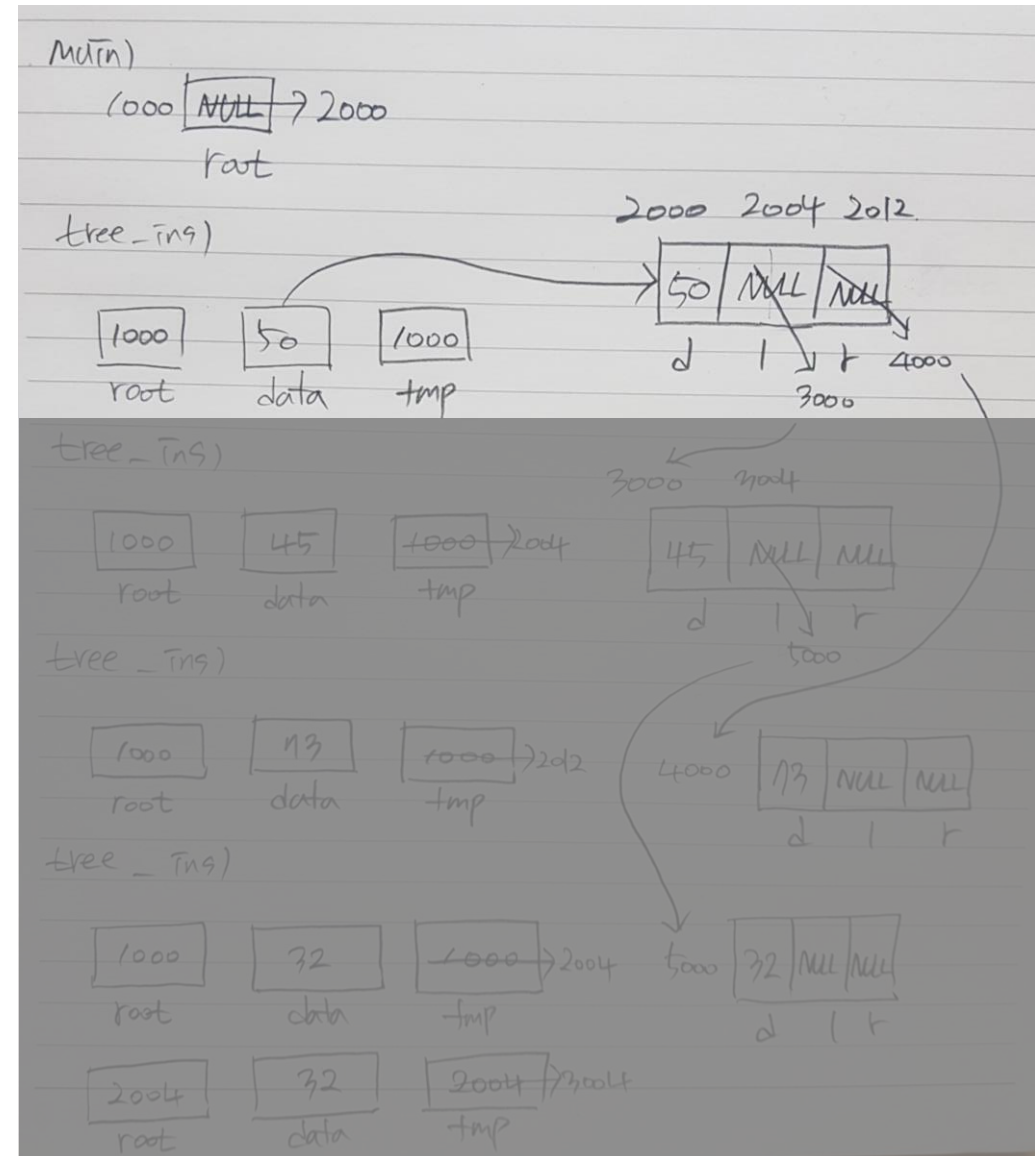 main)
1000 NULL → 2000
root
2000 2004 2012
tree_ins)
50 NULL NULL
1000 50 1000
d l r 4000
root data tmp
3000
tree_ins)
3000 3004
1000 45 1000 → 2004
45 NULL NULL
root data tmp
d l r
5000
tree_ins)
1000 73 1000 → 2012
4000 73 NULL NULL
root data tmp
d l r
tree_ins)
1000 32 1000 → 2004
5000 32 NULL NULL
root data tmp
d l r
2004 32 2004 → 3004
root data tmp